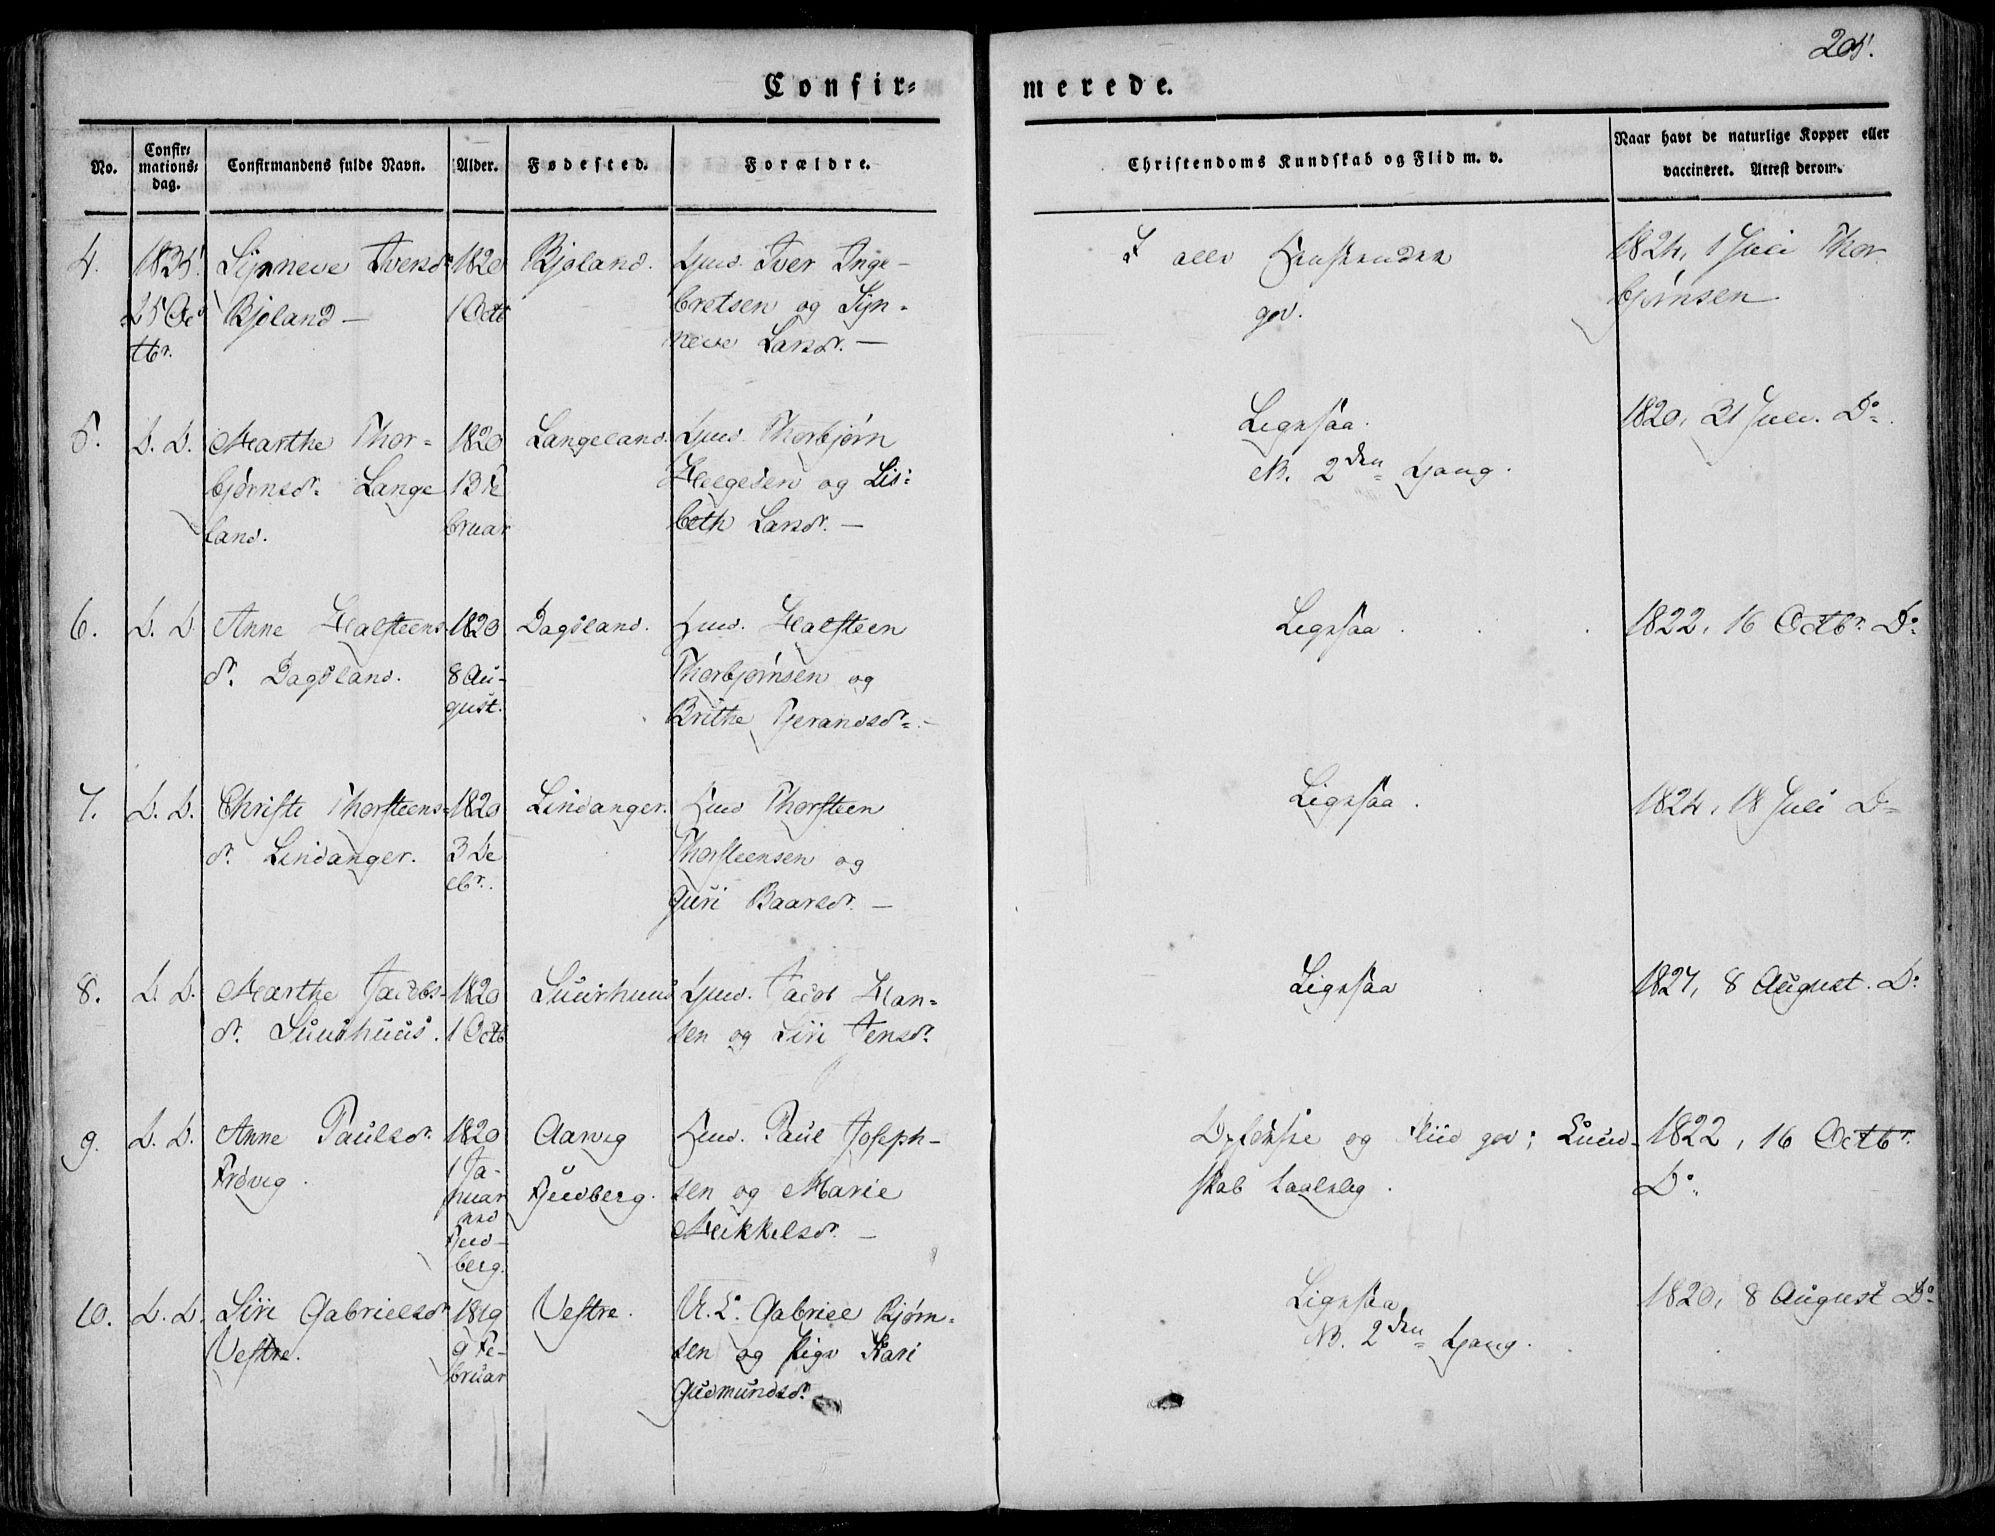 205.
Confir-
merede.
No.
Confir-
mations-
dag.
Confirmandens fulde Navn.
Alder.
Fødested.
Forældre.
Christendoms Kundskab og Flid m. v.
Naar havt de naturlige Kopper eller
vaccineret. Attest derom.
4.
1835.
25 Oc
tbr.
Synneve Iversdr
Bjoland
1820
1 Octb
Bjoland.
Gmd. Iver Inge-
bretsen og Syn-
neve Larsdr.
I alle Henseender
god.
1824, 1 Juli Thor
bjørnsen
5.
D. D.
Marthe Thor-
bjørnsdr. Lange
land.
1820
13 Fe
bruar
Langeland.
Gmd. Thorbjørn
Helgesen og Lis-
beth Larsdr.
Ligesaa.
N. 2den Gang.
1820, 31 Juli. Do
6.
D. D.
Anne Halsteens
dr. Dagsland.
1820
8 Au-
gust.
Dagsland.
Gmd. Halsteen
Thorbjørnsen og
Brithe Tjerandsdr.
Ligesaa
1822, 16 Octbr. Do
7.
D. D.
Christe Thorsteens-
dr. Lindanger.
1820
3 De
cbr.
Lindanger.
Gmd Thorsteen
Thorsteensen og
Guri Baarsdr.
Ligesaa.
1824, 18 Juli Do
8.
D. D.
Marthe Jacobs-
dr. Suurhuus.
1820
1 Octb
Suurhuus
Gmd. Jacob Han-
sen og Siri Jensdr.
Ligesaa
1827, 8 August. Do
9.
D. D.
Anne Paulsdr.
Frøvig.
1820
1 Ja-
nuar
ved
Fjeld-
berg.
Aarvig
Fjeldberg.
Gmd. Paul Joseph-
sen og Marie
Mikkelsdr.
Opførsel og Fliid god; Kund-
skab taalelig.
1822, 16 Octbr.
Do
10.
D. D.
Siri Gabrielsdr
Vestre.
1819
9 Fe-
bruar
Vestre.
U. K. Gabriel Bjørn-
sen og Pige Kari
Gudmundsdr.
Ligesaa
N. 2den Gang.
1820, 8 August Do